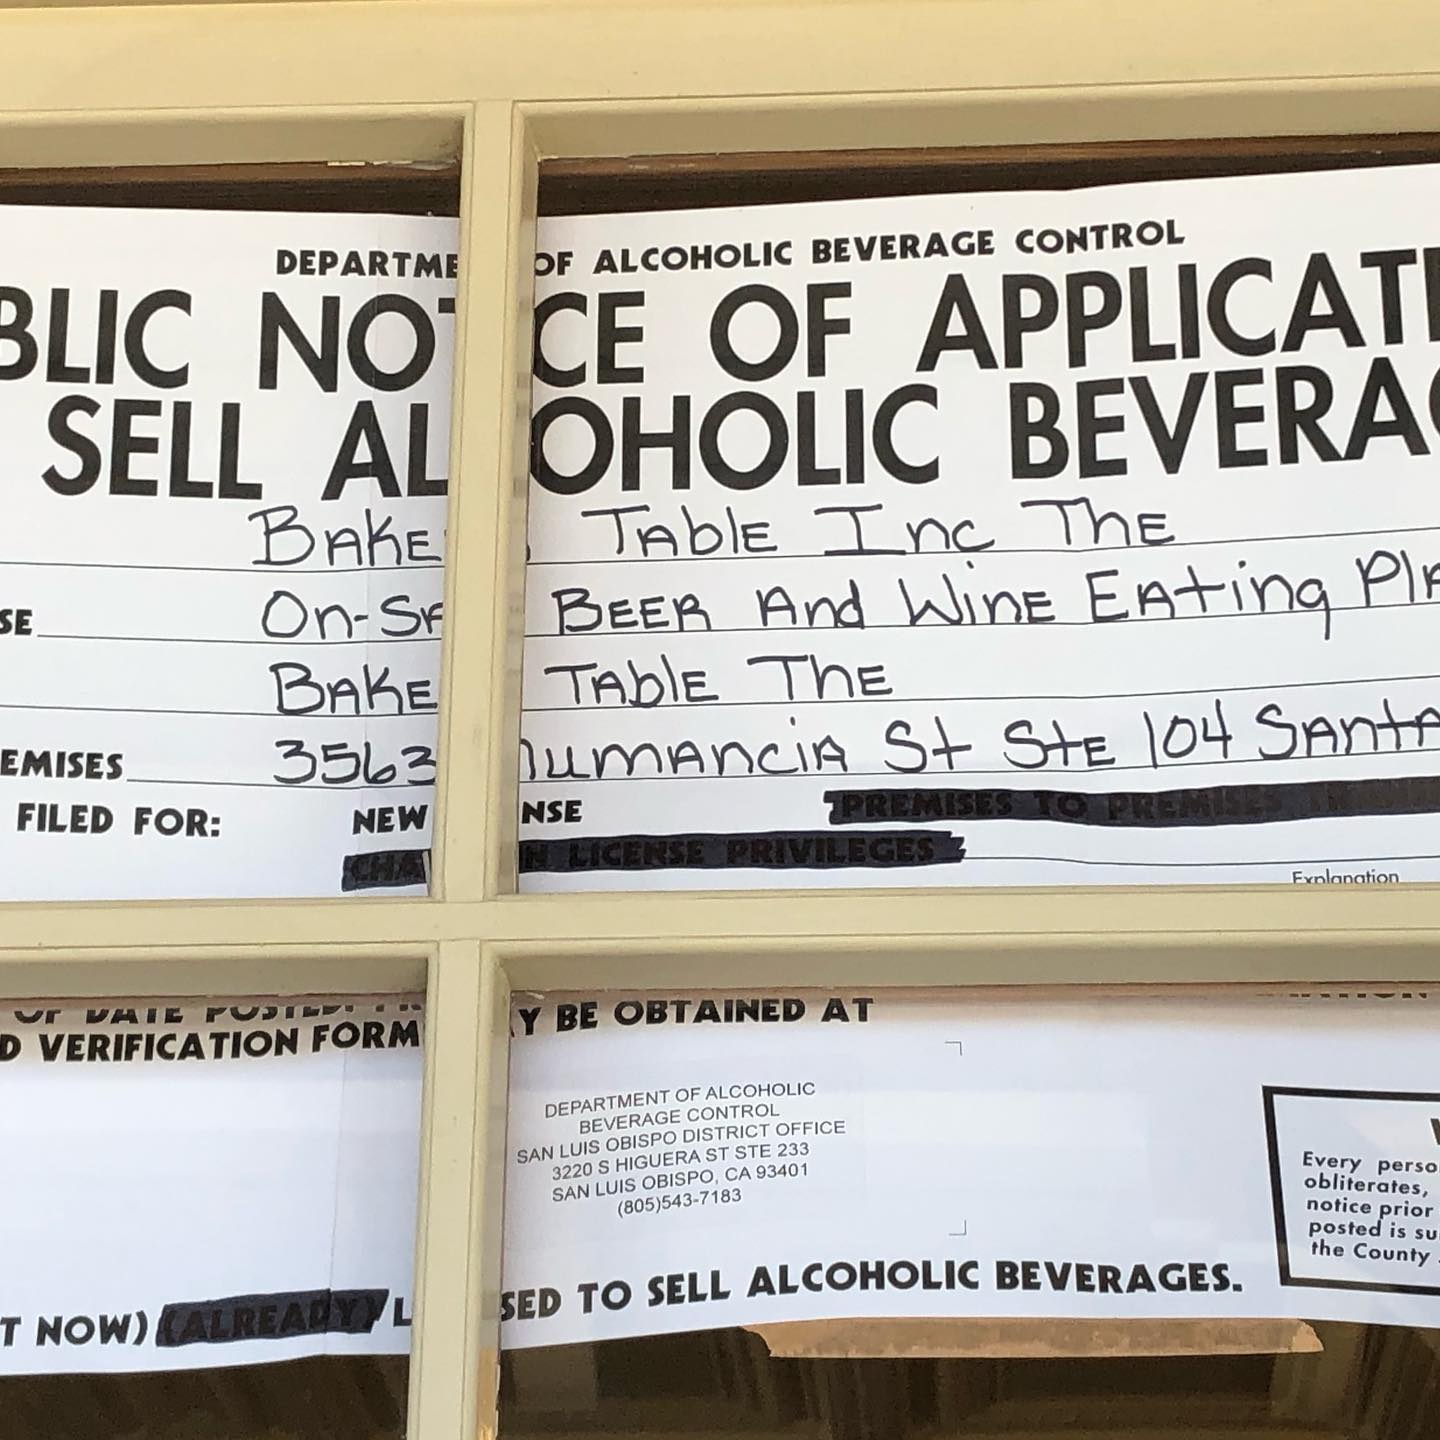 DEPARTME OF ALCOHOLIC BEVERAGE CONTROL
BLIC NOTICE OF APPLICATI
SELL ALCOHOLIC BEVERAG
BAKE TABLE INC THE
SE On-SA BEER And WINE EAting PlA
BAKE TABLE THE
EMISES 3563 numAnciA St StE 104 SAntA
FILED FOR: NEW NSE PREMISES TO PREMISES TRANS
CHA N LICENSE PRIVILEGES
Explanation
OF DATE POSTED.
D VERIFICATION FORM Y BE OBTAINED AT
DEPARTMENT OF ALCOHOLIC
BEVERAGE CONTROL
SAN LUIS OBISPO DISTRICT OFFICE
3220 S HIGUERA ST STE 233
SAN LUIS OBISPO, CA 93401
(805)543-7183
Every perso
obliterates,
notice prior
posted is su
the County
T NOW) (ALREADY) L SED TO SELL ALCOHOLIC BEVERAGES.